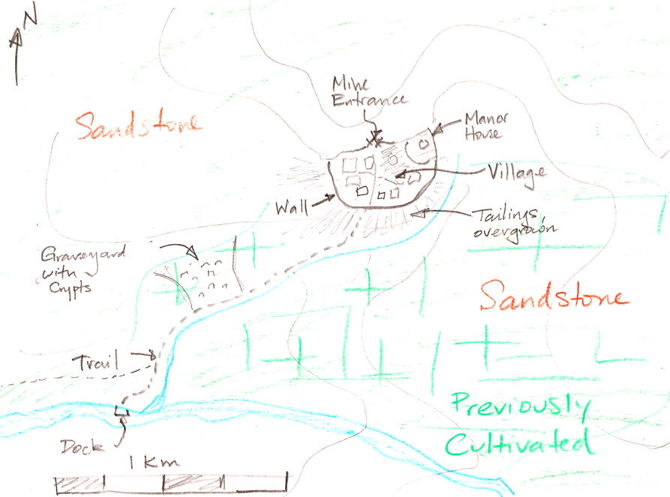 N
Mine
Entrance
Sandstone
Manor
House
Village
Wall
Tailings,
overgrown
Graveyard
with
Crypts
Sandstone
Trail
Previously
Cultivated
Dock
1 Km